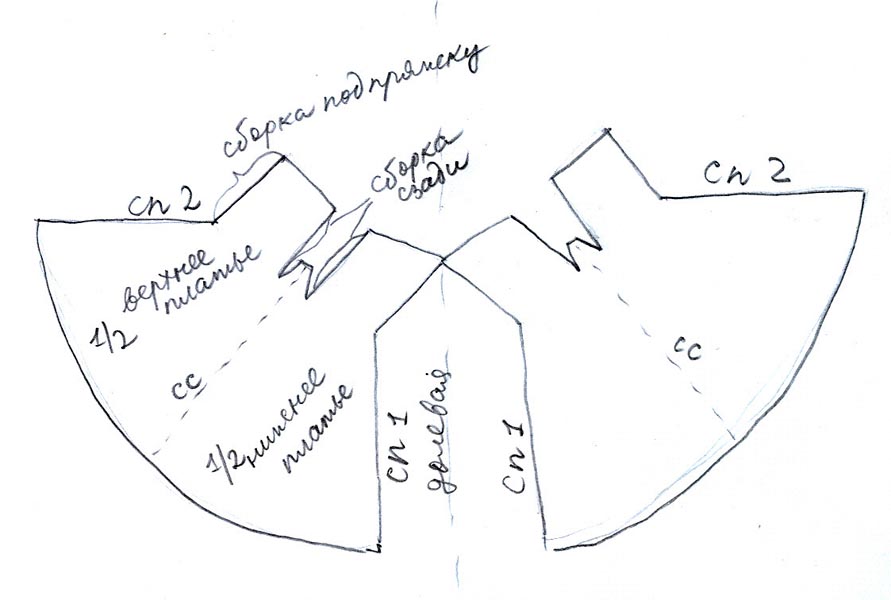 сборка под пряжку
сборка
сзади
сп 2
сп 2
верхнее
платье
1/2
сс
сс
1/2 нижнее
платье
сп 1
долевая
сп 1